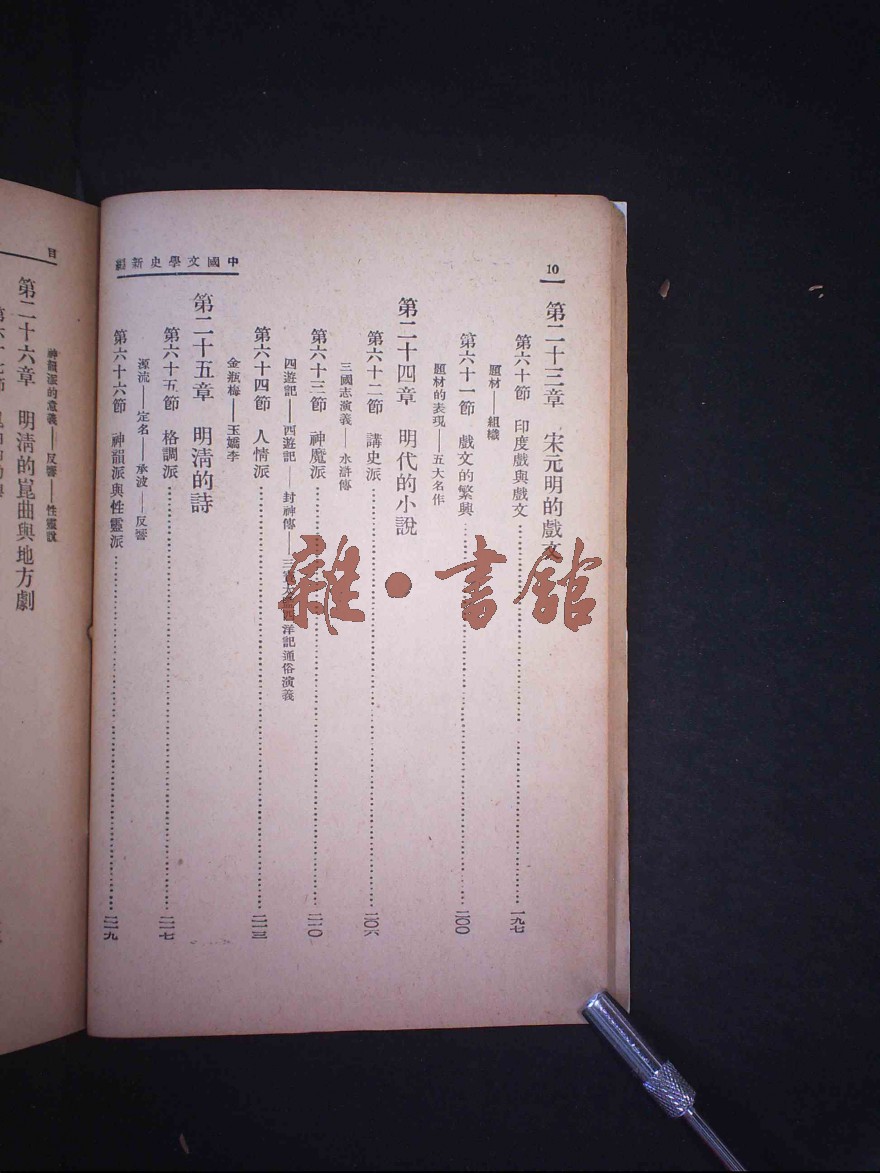 中國文學史新編
10
第二十三章　宋元明的戲文
第六十節　印度戲與戲文……一九七
題材——組織
第六十一節　戲文的繁興……二〇〇
題材的表現——五大名作
第二十四章　明代的小說
第六十二節　講史派……二〇六
三國志演義——水滸傳
第六十三節　神魔派……二一〇
四遊記——西遊記——封神傳——三寶太監西洋記通俗演義
第六十四節　人情派……二一三
金瓶梅——玉嬌李
第二十五章　明清的詩
第六十五節　格調派……二一七
源流——定名——承波——反響
第六十六節　神韻派與性靈派……二一九
目
神韻派的意義——反響——性靈說
第二十六章　明清的崑曲與地方劇
雜·書館